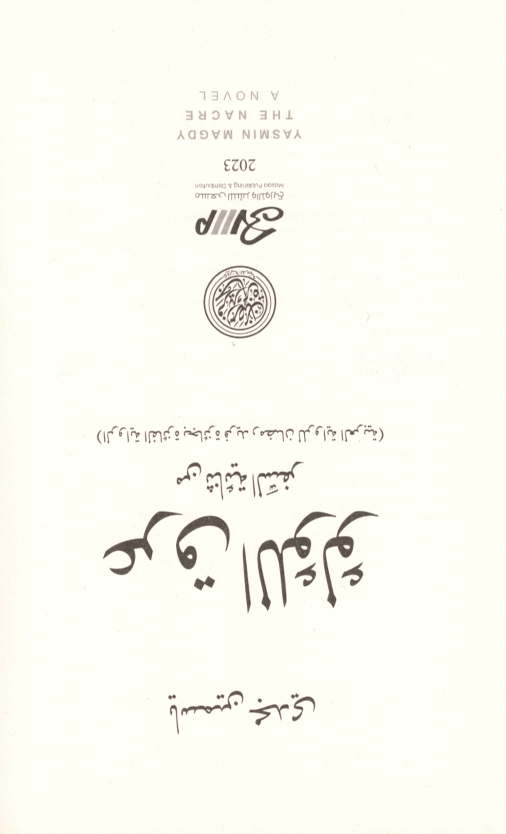 ياسمين مجدي
عرق اللؤلؤ
من ثنائية السَّفر
(الرواية الفائزة بجائزة فريد رمضان للرواية العربية)
مسعى للنشر والتوزيع
Masaa Publishing & Distribution
2023
YASMIN MAGDY
THE NACRE
A NOVEL